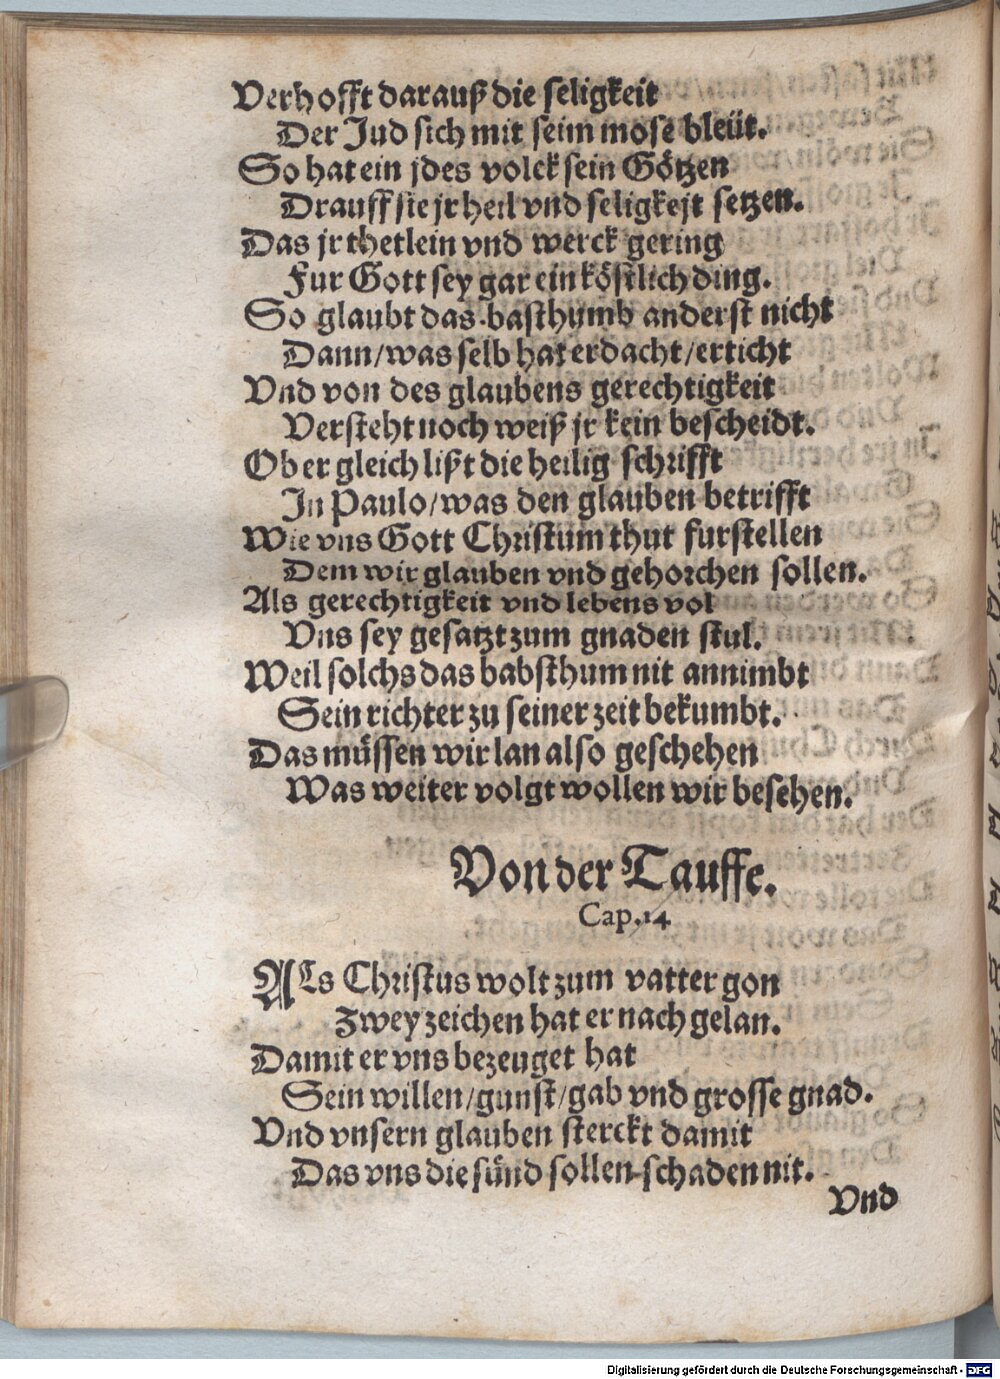 Verhofft darauß die seligkeit
Der Jud sich mit seim mose bleüt.
So hat ein jdes volck sein Götzen
Drauff sie jr heil vnd seligkejt setzen.
Das jr thetlein vnd werck gering
Fur Gott sey gar ein köstlich ding.
So glaubt das basthumb anderst nicht
Dann/was selb hat erdacht/erticht
Vnd von des glaubens gerechtigkeit
Versteht noch weiß jr kein bescheidt.
Ob er gleich lißt die heilig schrifft
In Paulo/was den glauben betrifft
Wie vns Gott Christum thut furstellen
Dem wir glauben vnd gehorchen sollen.
Als gerechtigkeit vnd lebens vol
Vns sey gesatzt zum gnaden stul.
Weil solchs das babsthum nit annimbt
Sein richter zu seiner zeit bekumbt.
Das müssen wir lan also geschehen
Was weiter volgt wollen wir besehen.
Von der Tauffe.
Cap. 14
ALs Christus wolt zum vatter gon
Zwey zeichen hat er nach gelan.
Damit er vns bezeuget hat
Sein willen/gunst/gab vnd grosse gnad.
Vnd vnsern glauben sterckt damit
Das vns die sünd sollen schaden nit.
Vnd
Digitalisierung gefördert durch die Deutsche Forschungsgemeinschaft - DFG